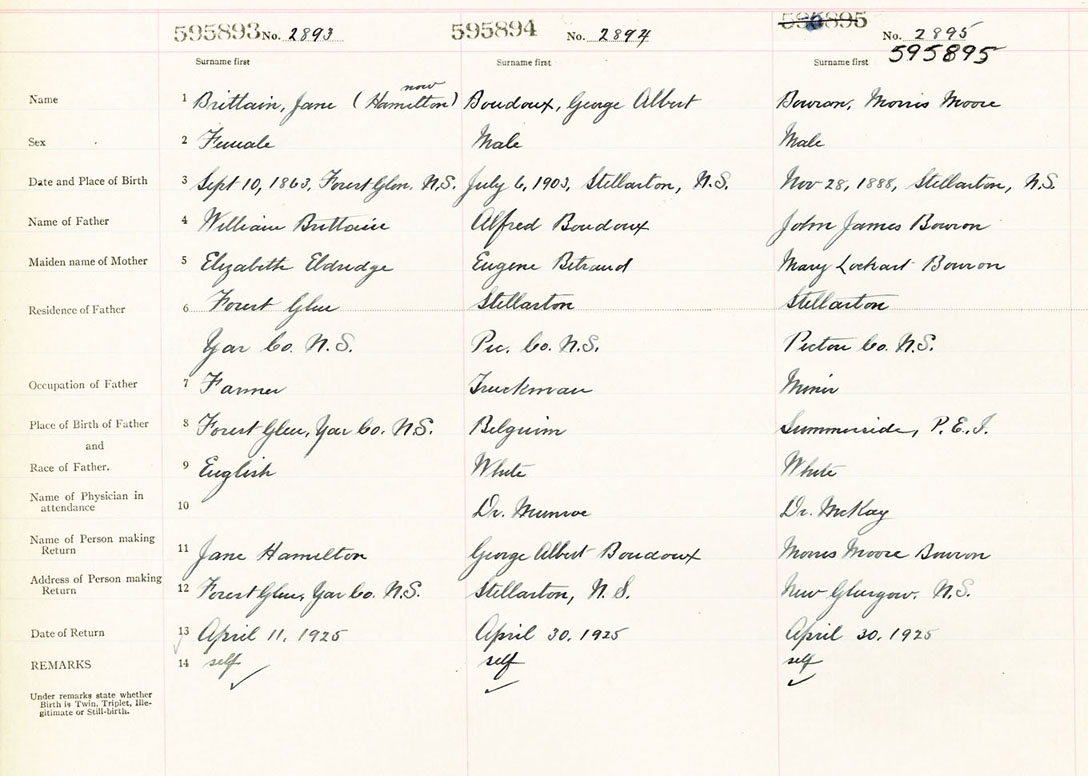 595893 No. 2893 595894 No. 2894 595895 No. 2895
595895
Surname first Surname first Surname first
now
Name 1 Brittain, Jane (Hamilton) Boudoux, George Albert Bowron, Morris Moore
Sex 2 Female Male Male
Date and Place of Birth 3 Sept 10, 1863, Forest Glen, N.S. July 6, 1903, Stellarton, N.S. Nov 28, 1888, Stellarton, N.S.
Name of Father 4 William Brittain Alfred Boudoux John James Bowron
Maiden name of Mother 5 Elizabeth Eldridge Eugene Betraud Mary Lockart Bowron
Residence of Father 6 Forest Glen Stellarton Stellarton
Yar Co. N.S. Pic. Co. N.S. Pictou Co. N.S.
Occupation of Father 7 Farmer Truckman Miner
Place of Birth of Father 8 Forest Glen, Yar Co. N.S. Belguim Summerside, P.E.I.
and
Race of Father. 9 English White White
Name of Physician in
attendance 10 Dr. Munroe Dr. McKay
Name of Person making
Return 11 Jane Hamilton George Albert Boudoux Morris Moore Bowron
Address of Person making
Return 12 Forest Glen, Yar Co. N.S. Stellarton, N.S. New Glasgow, N.S.
Date of Return 13 April 11, 1925 April 30, 1925 April 30, 1925
REMARKS 14 self self self
Under remarks state whether
Birth is Twin, Triplet, Ille-
gitimate or Still-birth.